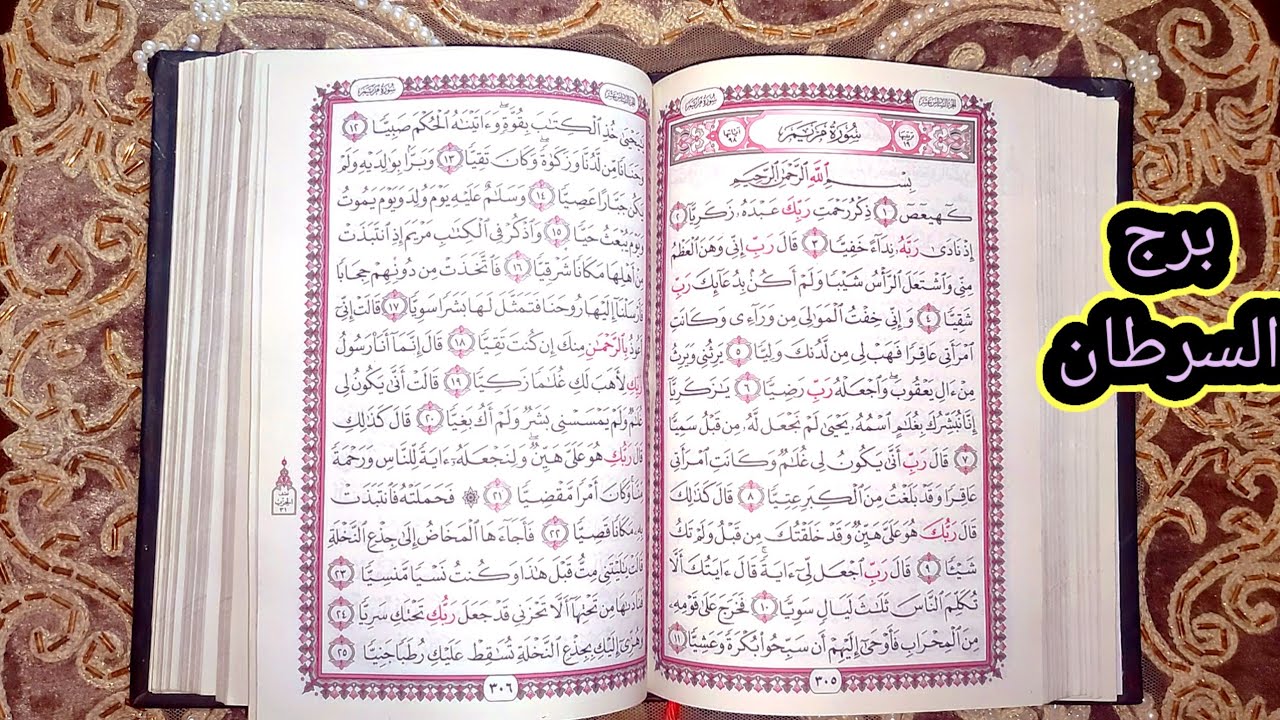 سُورَةُ مَرْيَمَ
الجزء السادس عشر
ترتيبها ١٩
سُورَةُ مَرْيَمَ
آياتها ٩٨
بِسْمِ ٱللَّهِ ٱلرَّحْمَٰنِ ٱلرَّحِيمِ
كٓهيعٓصٓ ١ ذِكْرُ رَحْمَتِ رَبِّكَ عَبْدَهُۥ زَكَرِيَّآ ٢
إِذْ نَادَىٰ رَبَّهُۥ نِدَآءً خَفِيًّا ٣ قَالَ رَبِّ إِنِّي وَهَنَ ٱلْعَظْمُ
مِنِّي وَٱشْتَعَلَ ٱلرَّأْسُ شَيْبًا وَلَمْ أَكُنۢ بِدُعَآئِكَ رَبِّ
شَقِيًّا ٤ وَإِنِّي خِفْتُ ٱلْمَوَٰلِيَ مِن وَرَآءِي وَكَانَتِ
ٱمْرَأَتِي عَاقِرًا فَهَبْ لِي مِن لَّدُنكَ وَلِيًّا ٥ يَرِثُنِي وَيَرِثُ
مِنْ ءَالِ يَعْقُوبَ ۖ وَٱجْعَلْهُ رَبِّ رَضِيًّا ٦ يَٰزَكَرِيَّآ
إِنَّا نُبَشِّرُكَ بِغُلَٰمٍ ٱسْمُهُۥ يَحْيَىٰ لَمْ نَجْعَل لَّهُۥ مِن قَبْلُ سَمِيًّا
٧ قَالَ رَبِّ أَنَّىٰ يَكُونُ لِي غُلَٰمٌ وَكَانَتِ ٱمْرَأَتِي
عَاقِرًا وَقَدْ بَلَغْتُ مِنَ ٱلْكِبَرِ عِتِيًّا ٨ قَالَ كَذَٰلِكَ
قَالَ رَبُّكَ هُوَ عَلَيَّ هَيِّنٌ وَقَدْ خَلَقْتُكَ مِن قَبْلُ وَلَمْ تَكُ
شَيْـًٔا ٩ قَالَ رَبِّ ٱجْعَل لِّيٓ ءَايَةً ۚ قَالَ ءَايَتُكَ أَلَّا
تُكَلِّمَ ٱلنَّاسَ ثَلَٰثَ لَيَالٍ سَوِيًّا ١٠ فَخَرَجَ عَلَىٰ قَوْمِهِۦ
مِنَ ٱلْمِحْرَابِ فَأَوْحَىٰٓ إِلَيْهِمْ أَن سَبِّحُوا۟ بُكْرَةً وَعَشِيًّا ١١
٣٠٥
سُورَةُ مَرْيَمَ
الجزء السادس عشر
يَٰيَحْيَىٰ خُذِ ٱلْكِتَٰبَ بِقُوَّةٍ ۖ وَءَاتَيْنَٰهُ ٱلْحُكْمَ صَبِيًّا ١٢
وَحَنَانًا مِّن لَّدُنَّا وَزَكَوٰةً ۖ وَكَانَ تَقِيًّا ١٣ وَبَرًّۢا بِوَٰلِدَيْهِ وَلَمْ
يَكُن جَبَّارًا عَصِيًّا ١٤ وَسَلَٰمٌ عَلَيْهِ يَوْمَ وُلِدَ وَيَوْمَ يَمُوتُ
وَيَوْمَ يُبْعَثُ حَيًّا ١٥ وَٱذْكُرْ فِي ٱلْكِتَٰبِ مَرْيَمَ إِذِ ٱنتَبَذَتْ
مِنْ أَهْلِهَا مَكَانًا شَرْقِيًّا ١٦ فَٱتَّخَذَتْ مِن دُونِهِمْ حِجَابًا
فَأَرْسَلْنَآ إِلَيْهَا رُوحَنَا فَتَمَثَّلَ لَهَا بَشَرًا سَوِيًّا ١٧ قَالَتْ إِنِّيٓ
أَعُوذُ بِٱلرَّحْمَٰنِ مِنكَ إِن كُنتَ تَقِيًّا ١٨ قَالَ إِنَّمَآ أَنَا۠ رَسُولُ
رَبِّكِ لِأَهَبَ لَكِ غُلَٰمًا زَكِيًّا ١٩ قَالَتْ أَنَّىٰ يَكُونُ لِي
غُلَٰمٌ وَلَمْ يَمْسَسْنِي بَشَرٌ وَلَمْ أَكُ بَغِيًّا ٢٠ قَالَ كَذَٰلِكِ
قَالَ رَبُّكِ هُوَ عَلَيَّ هَيِّنٌ ۖ وَلِنَجْعَلَهُۥٓ ءَايَةً لِّلنَّاسِ وَرَحْمَةً
مِّنَّا ۚ وَكَانَ أَمْرًا مَّقْضِيًّا ٢١ ۞ فَحَمَلَتْهُ فَٱنتَبَذَتْ
بِهِۦ مَكَانًا قَصِيًّا ٢٢ فَأَجَآءَهَا ٱلْمَخَاضُ إِلَىٰ جِذْعِ ٱلنَّخْلَةِ
قَالَتْ يَٰلَيْتَنِي مِتُّ قَبْلَ هَٰذَا وَكُنتُ نَسْيًا مَّنسِيًّا ٢٣
فَنَادَىٰهَا مِن تَحْتِهَآ أَلَّا تَحْزَنِي قَدْ جَعَلَ رَبُّكِ تَحْتَكِ سَرِيًّا ٢٤
وَهُزِّيٓ إِلَيْكِ بِجِذْعِ ٱلنَّخْلَةِ تُسَٰقِطْ عَلَيْكِ رُطَبًا جَنِيًّا ٢٥
نصف
الحزب
٣١
٣٠٦
برج
السرطان